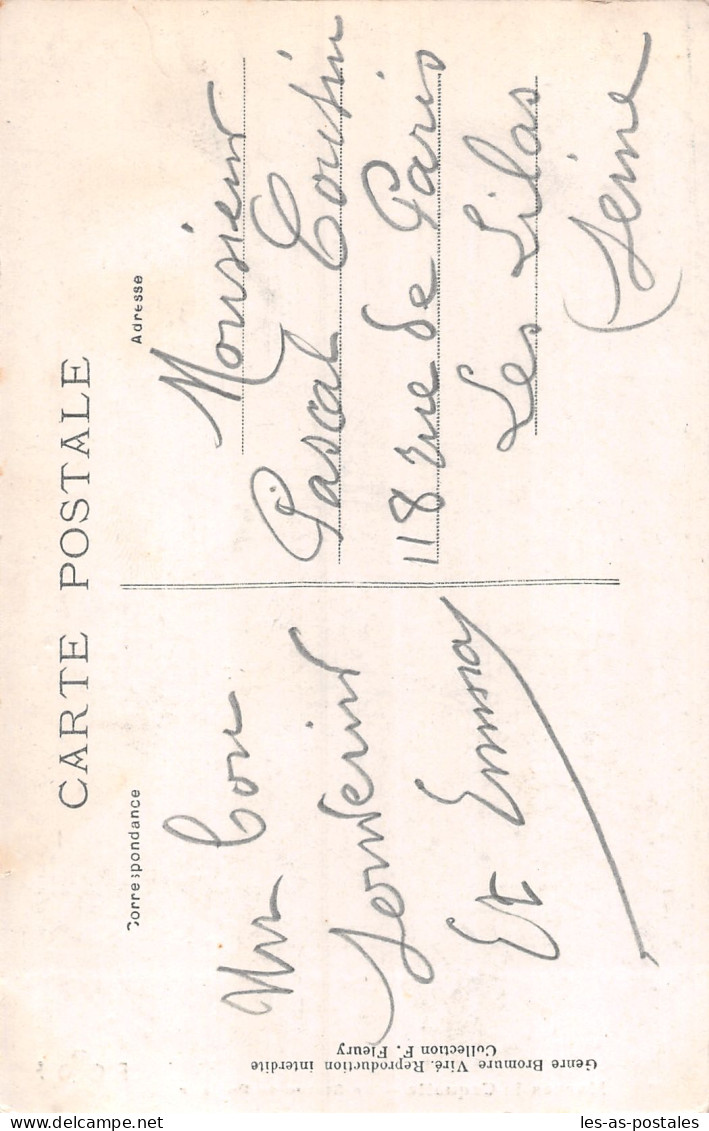 CARTE POSTALE
Correspondance
Un bon
souvenir
Et Emma
Adresse
Monsieur
Pascal Cousin
118 rue de Paris
Les Lilas
(Seine
Genre Bromure Viré. Reproduction interdite
Collection F. Fleury
les-as-postales